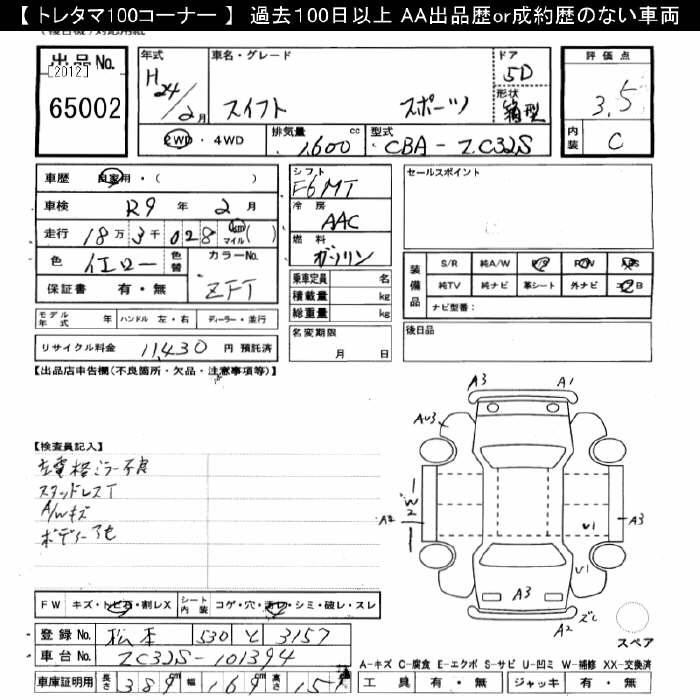 【 トレタマ100コーナー 】 過去100日以上 AA出品歴or成約歴のない車両
出品No.
[2012]
65002
年式 H24/2月
車名・グレード スイフト スポーツ
ドア 5D
形状 箱型
評価点 3.5
内装 C
2WD・4WD
排気量 1,600 cc
型式 CBA-ZC32S
車歴 自家用・( )
車検 R9年 2月
走行 18万3千028 Km マイル( )
色 イエロー 色替
カラーNo. ZFT
保証書 有・無
モデル年式 年 ハンドル 左・右 ディーラー・並行
リサイクル料金 11,430 円 預託済
シフト F6MT
冷房 AAC
燃料 ガソリン
乗車定員 名
積載量 kg
総重量 kg
名変期限
月 日
セールスポイント
装備品
S/R 純A/W P/S P/W ABS
純TV 純ナビ 革シート 外ナビ エアB
ナビ型番:
後日品
【出品店申告欄(不良箇所・欠品・注意事項等)】
【検査員記入】
左電格ミラー不良
スタッドレスT
A/Wキズ
ボディー下セ
A3 A1
AU3
W2
A2
A3
U1
U1
A3
A2 ズレ
スペア
FW キズ・トビ石・割レX
シート内装 コゲ・穴・汚レ・シミ・破レ・スレ
登録No. 松本 530 と 3157
車台No. ZC32S-101394
車庫証明用 長さ 389cm 幅 169cm 高さ 151
A-キズ C-腐食 E-エクボ S-サビ U-凹ミ W-補修 XX-交換済
工具 有・無 ジャッキ 有・無